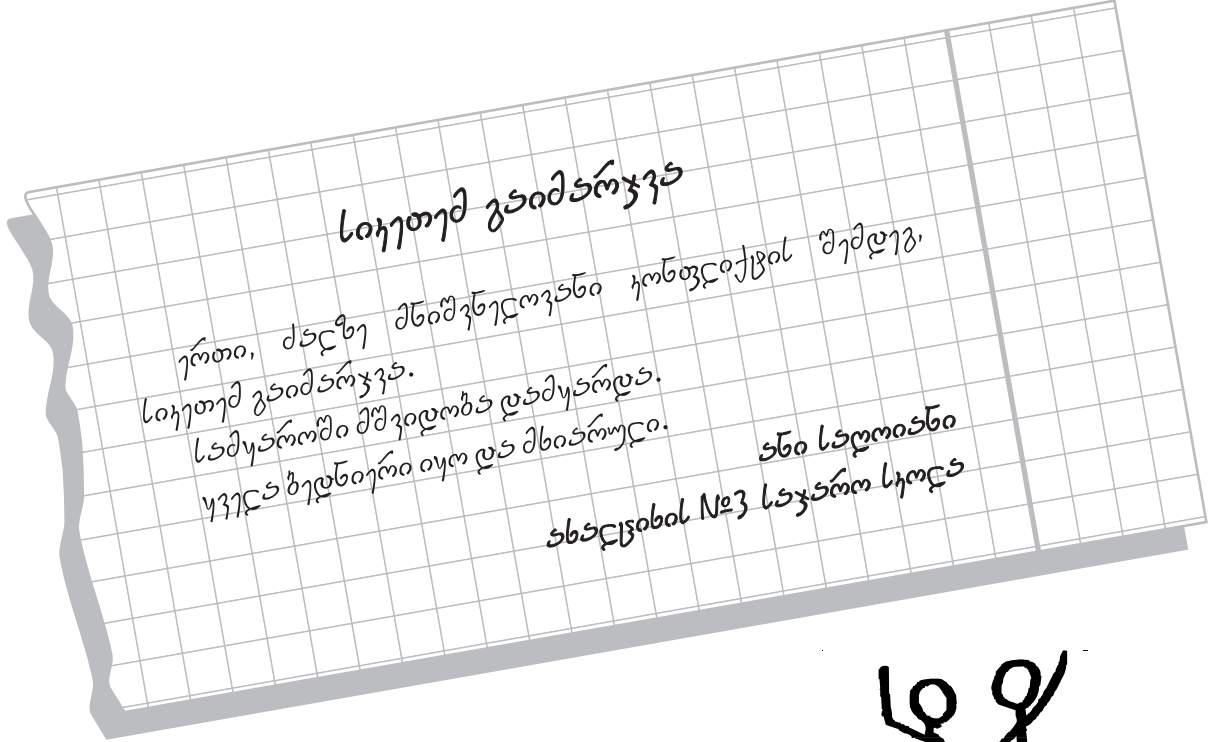 სიკეთემ გაიმარჯვა
ერთი, ძალზე მნიშვნელოვანი კონფლიქტის შემდეგ,
სიკეთემ გაიმარჯვა.
სამყაროში მშვიდობა დამყარდა.
ყველა ბედნიერი იყო და მხიარული.
ანი საღოიანი
ახალციხის №3 საჯარო სკოლა